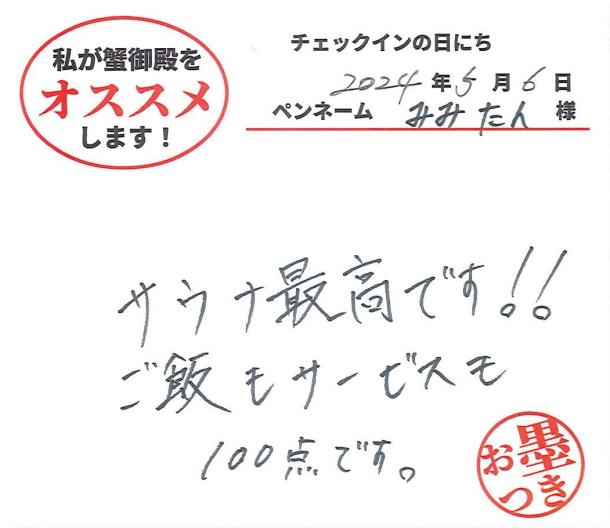 私が蟹御殿を
オススメ
します！
チェックインの日にち
2024年5月6日
ペンネーム みみたん 様
サウナ最高です!!
ご飯もサービスも
100点です。
お墨つき